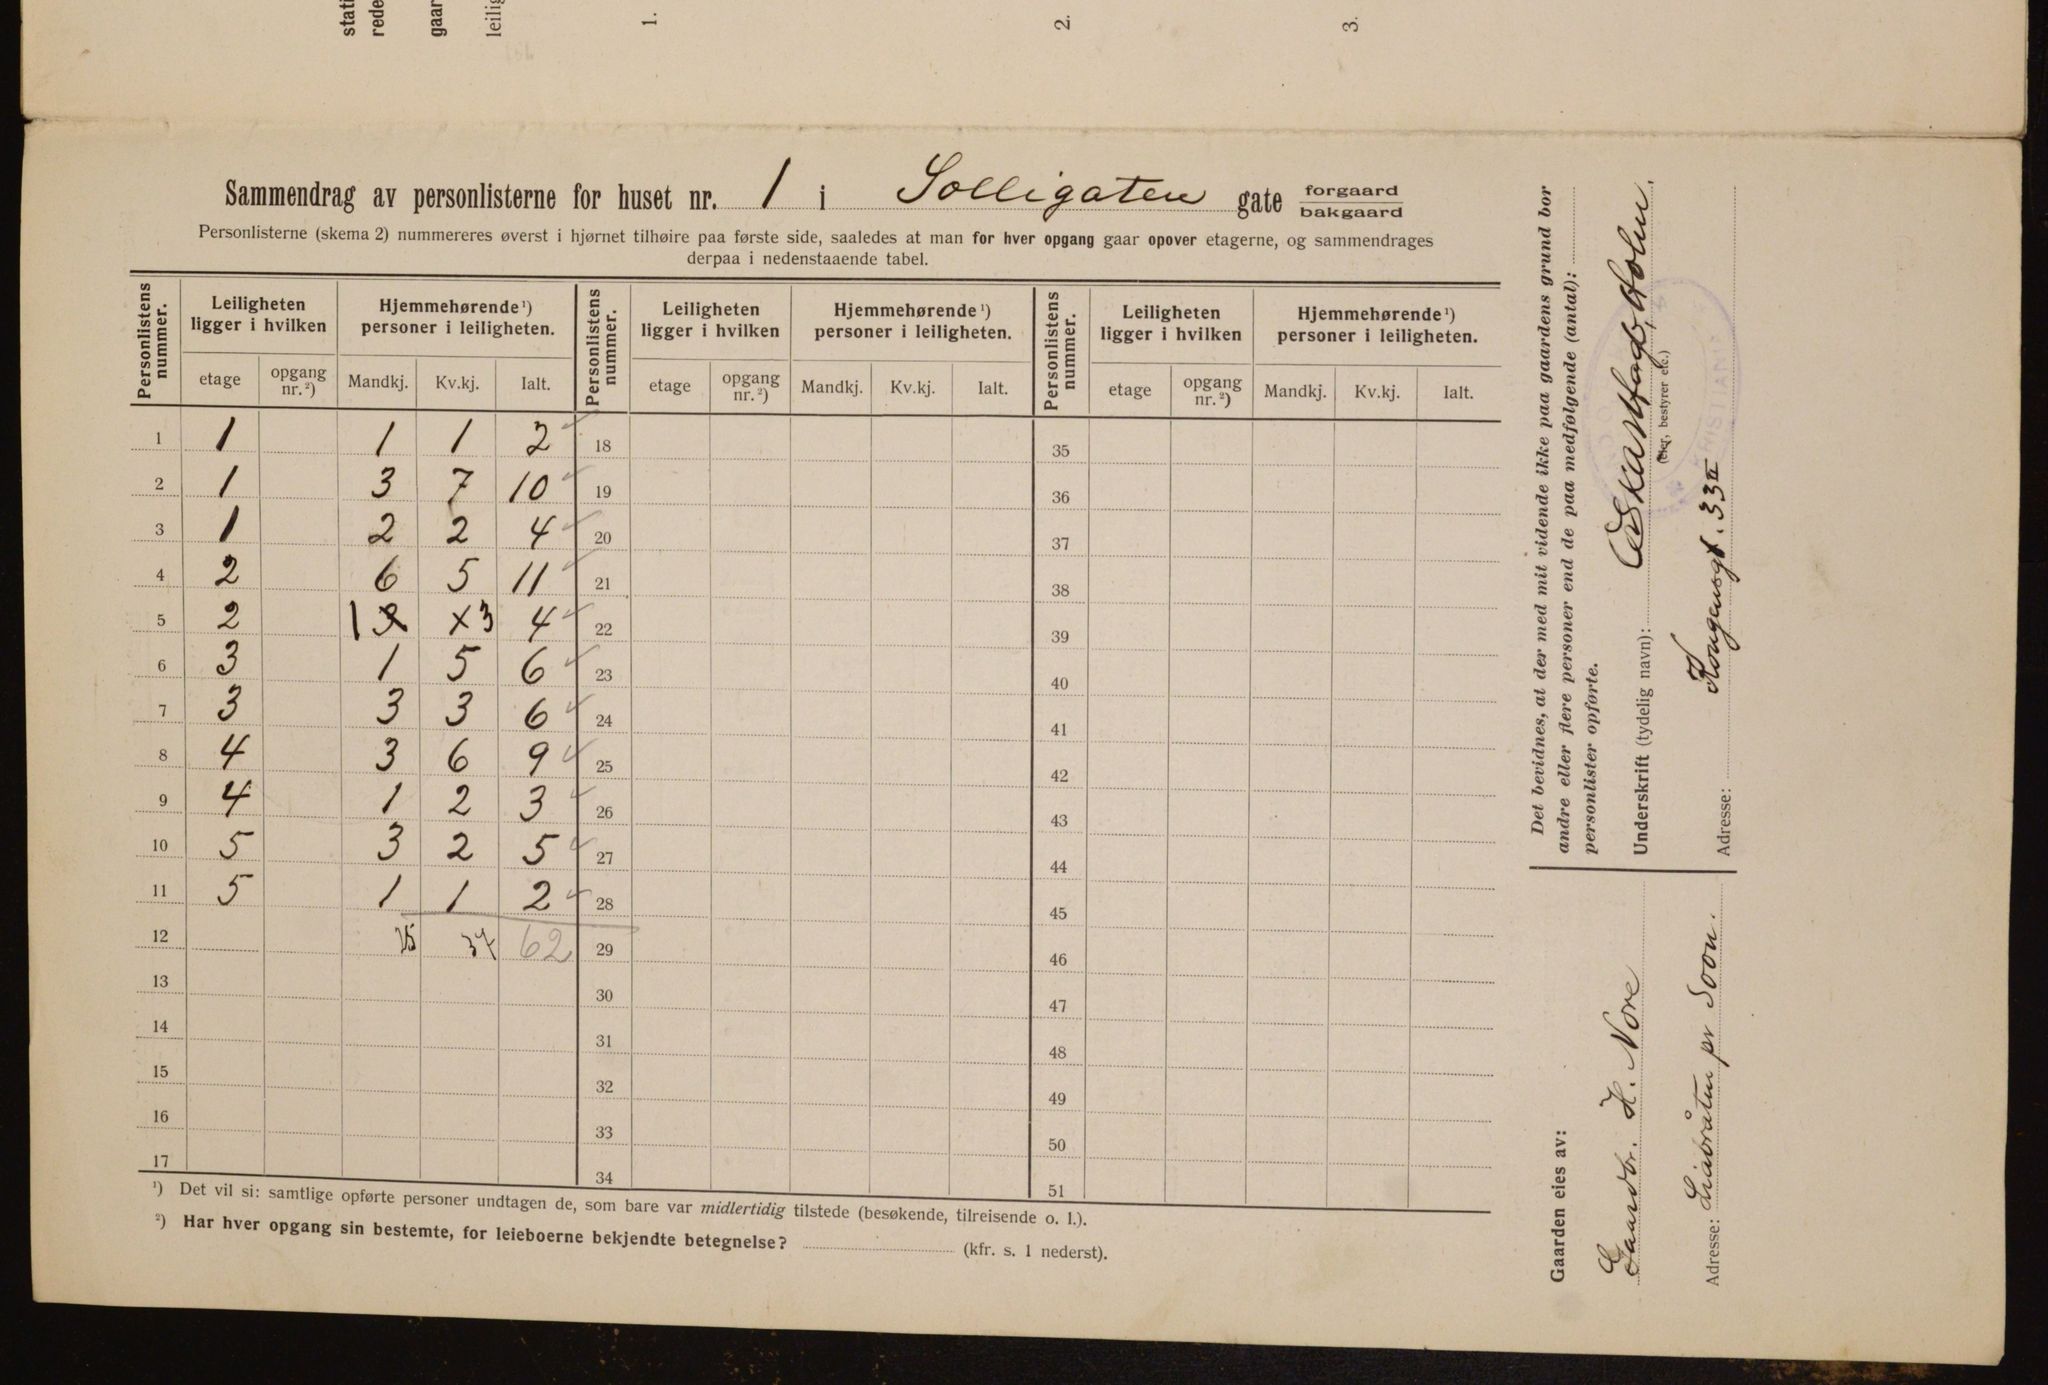 stati
rede
gaar
leilig
1.
2.
3.
Sammendrag av personlisterne for huset nr. 1 i Solligaten gate forgaard
bakgaard
Personlisterne (skema 2) nummereres øverst i hjørnet tilhøire paa første side, saaledes at man for hver opgang gaar opover etagerne, og sammendrages
derpaa i nedenstaaende tabel.
Personlistens nummer. Leiligheten ligger i hvilken Hjemmehørende ¹) personer i leiligheten. Personlistens nummer. Leiligheten ligger i hvilken Hjemmehørende ¹) personer i leiligheten. Personlistens nummer. Leiligheten ligger i hvilken Hjemmehørende ¹) personer i leiligheten.
etage opgang nr. ²) Mandkj. Kv.kj. Ialt. etage opgang nr. ²) Mandkj. Kv.kj. Ialt. etage opgang nr. ²) Mandkj. Kv.kj. Ialt.
1 1 1 1 2 18 35
2 1 3 7 10 19 36
3 1 2 2 4 20 37
4 2 6 5 11 21 38
5 2 1 3 4 22 39
6 3 1 5 6 23 40
7 3 3 3 6 24 41
8 4 3 6 9 25 42
9 4 1 2 3 26 43
10 5 3 2 5 27 44
11 5 1 1 2 28 45
12 25 37 62 29 46
13 30 47
14 31 48
15 32 49
16 33 50
17 34 51
¹) Det vil si: samtlige opførte personer undtagen de, som bare var midlertidig tilstede (besøkende, tilreisende o. l.).
²) Har hver opgang sin bestemte, for leieboerne bekjendte betegnelse? (kfr. s. 1 nederst).
Det bevidnes, at der med mit vidende ikke paa gaardens grund bor
andre eller flere personer end de paa medfølgende (antal):
personlister opførte.
Underskrift (tydelig navn):
(Eier, bestyrer etc.)
Adresse: Kongensgt. 33 II
Gaarden eies av:
Gaardbr. H. Nore
Adresse: Liabråten pr Soon.